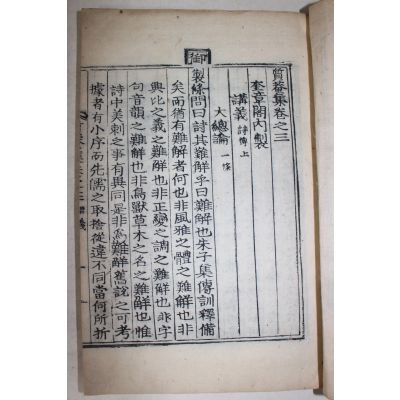 御
質菴集卷之三
奎章閣內製
講義 詩傳上
大總論 一條
製條問曰詩其難解乎曰難解也朱子集傳訓釋備
矣而猶有難解者何也非風雅之體之難解也非
興比之義之難解也非正變之調之難解也非字
句音韻之難解也非鳥獸草木之名之難解也惟
詩中美刺之事有異同是非爲難解舊說之可考
據者有小序而先儒之取捨從違不同當何所折